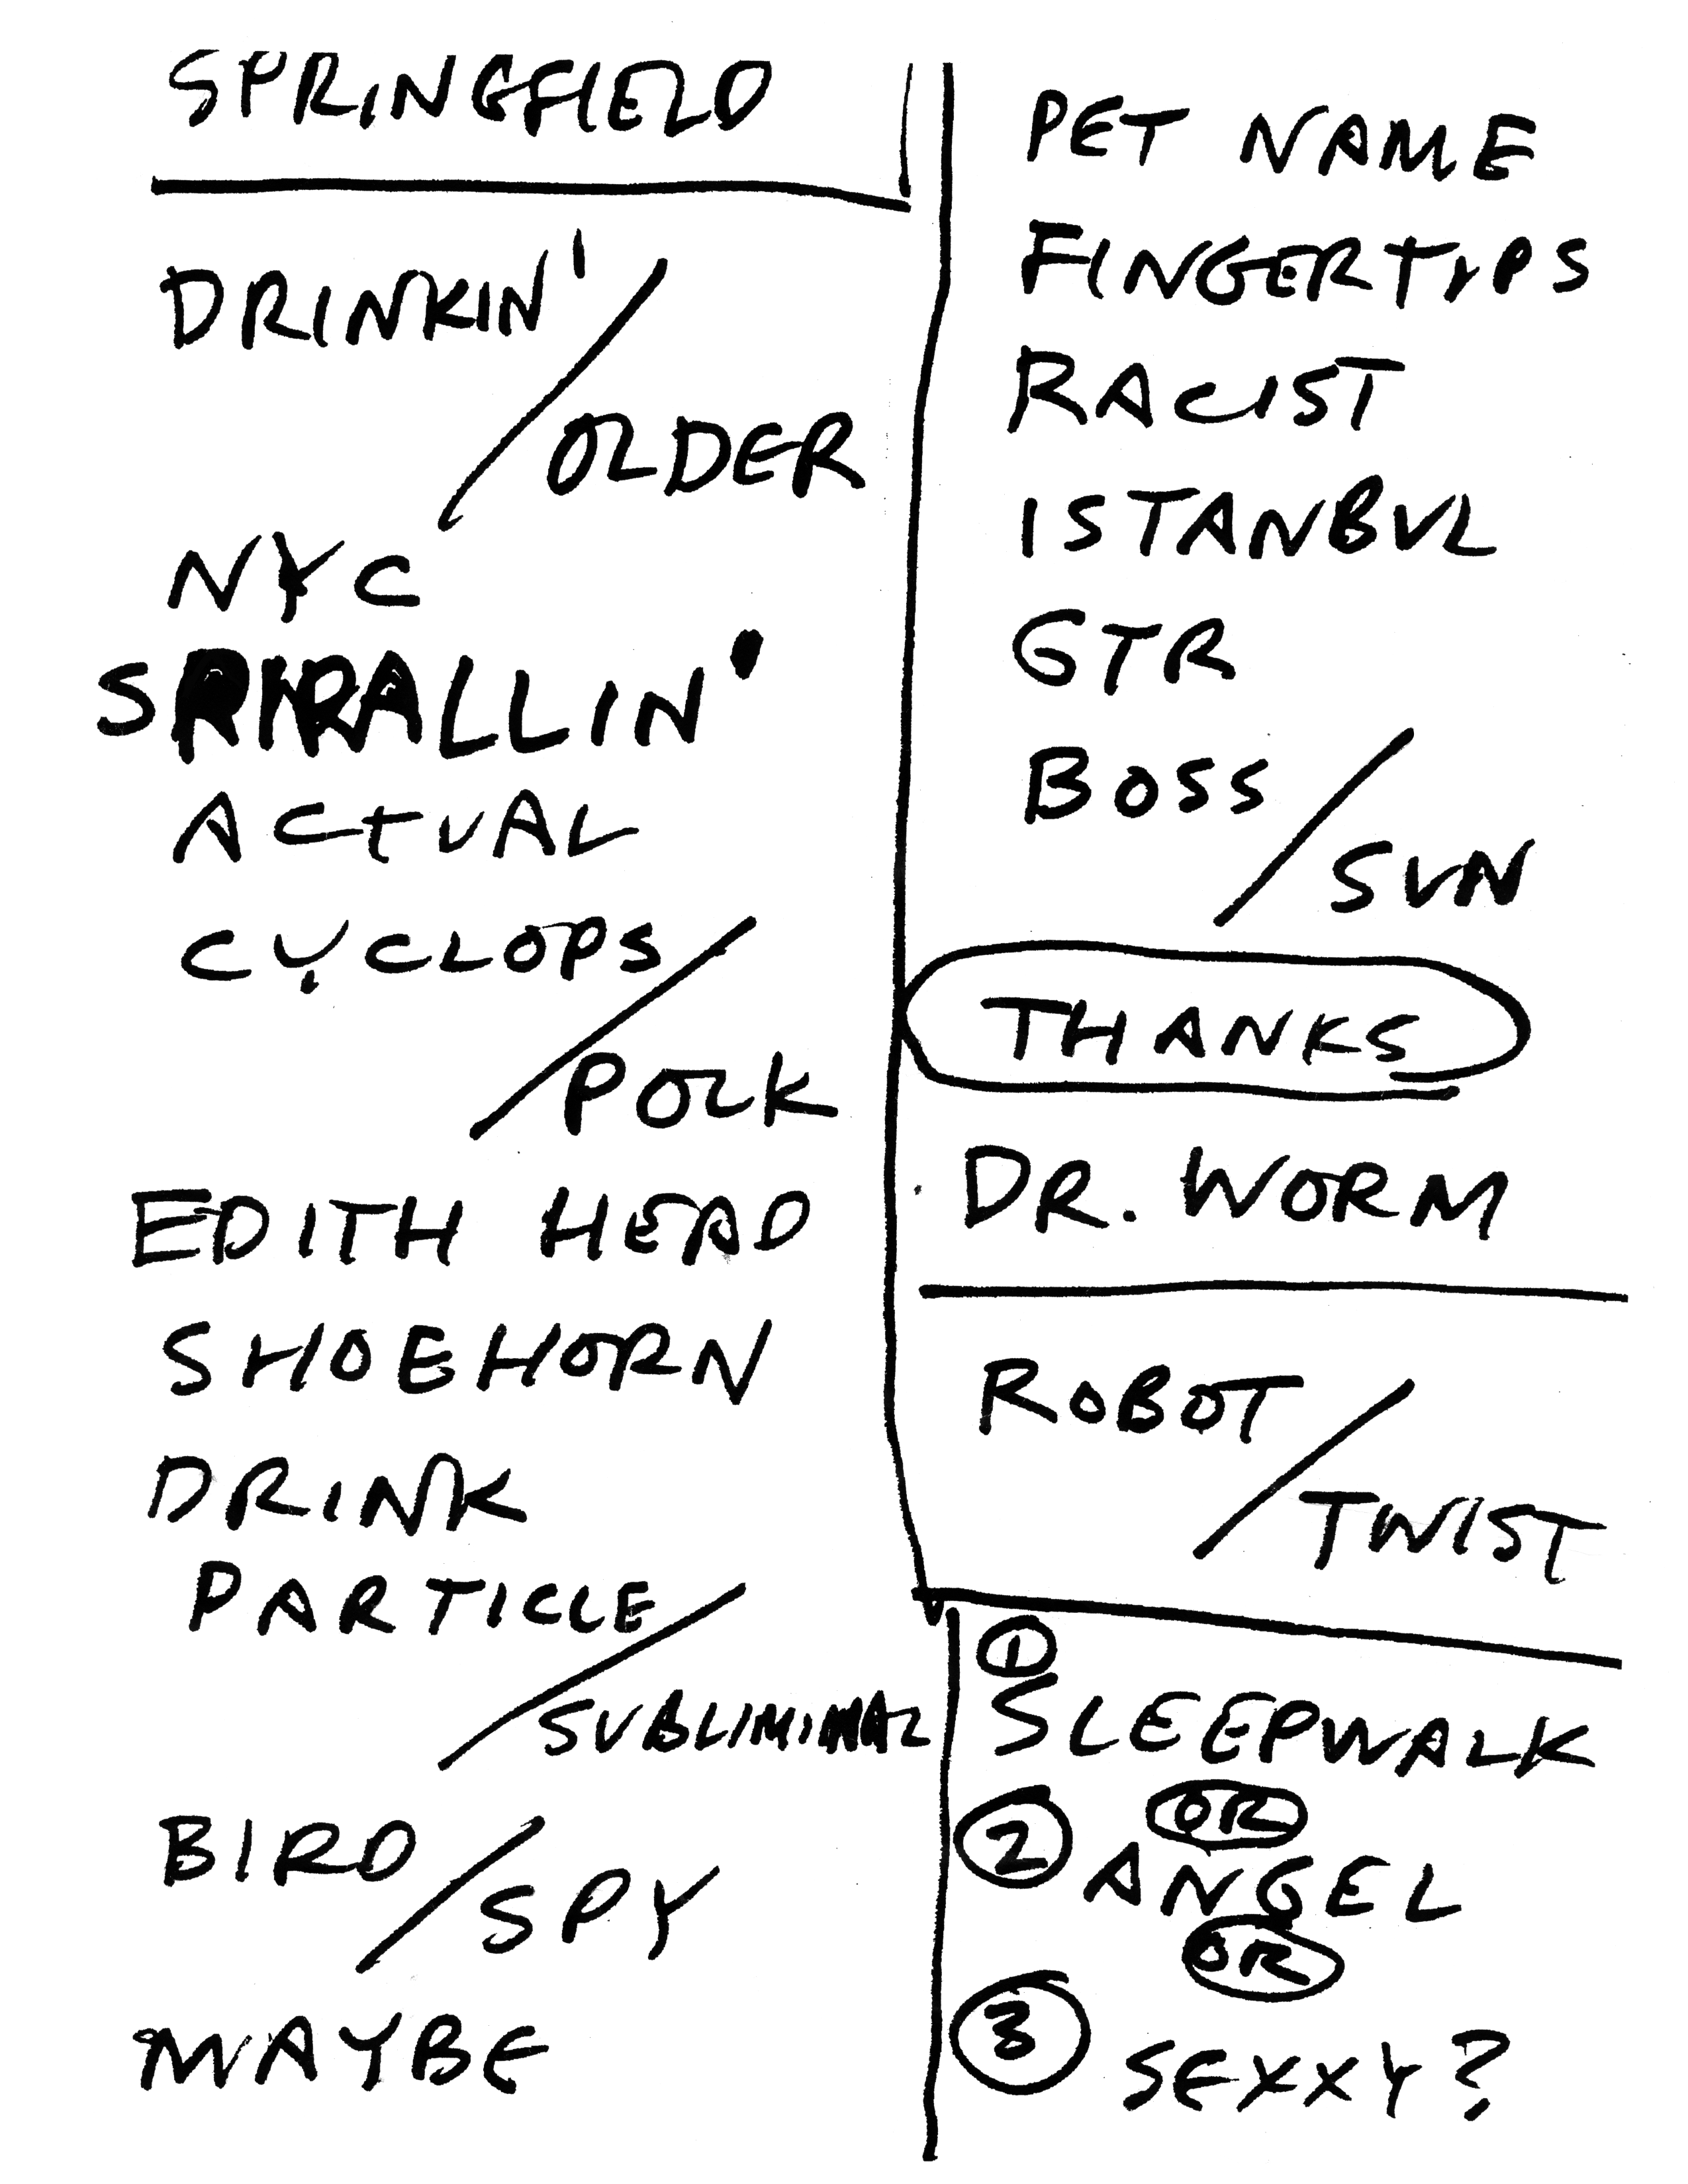 SPRINGFIELD
DRINKIN'/
OLDER
NYC
SPIRALLIN'
ACTUAL
CYCLOPS/
POLK
EDITH HEAD
SHOEHORN
DRINK
PARTICLE/
SUBLIMINAL
BIRD/
SPY
MAYBE
PET NAME
FINGERTIPS
RACIST
ISTANBUL
GTR
BOSS/
SUN
THANKS
DR. WORM
ROBOT/
TWIST
①
SLEEPWALK
OR
② ANGEL
OR
③ SEXXY?